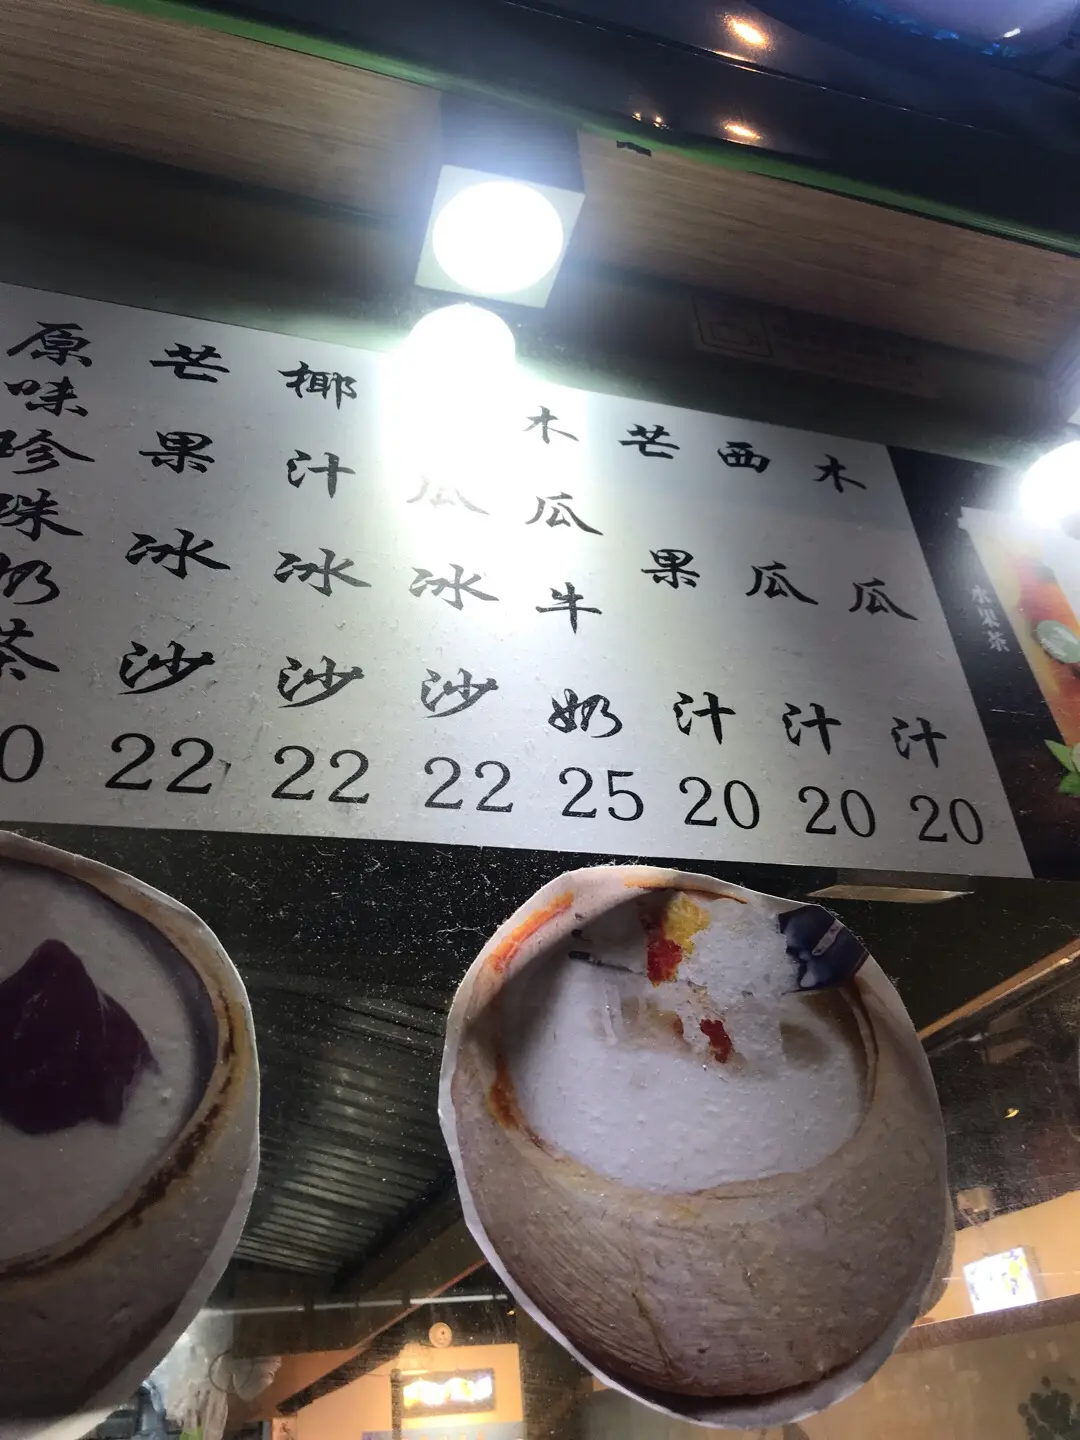 原味珍珠奶茶
芒果冰沙 22
椰汁冰沙 22
瓜冰沙 22
木瓜牛奶 25
芒果汁 20
西瓜汁 20
木瓜汁 20
水果茶